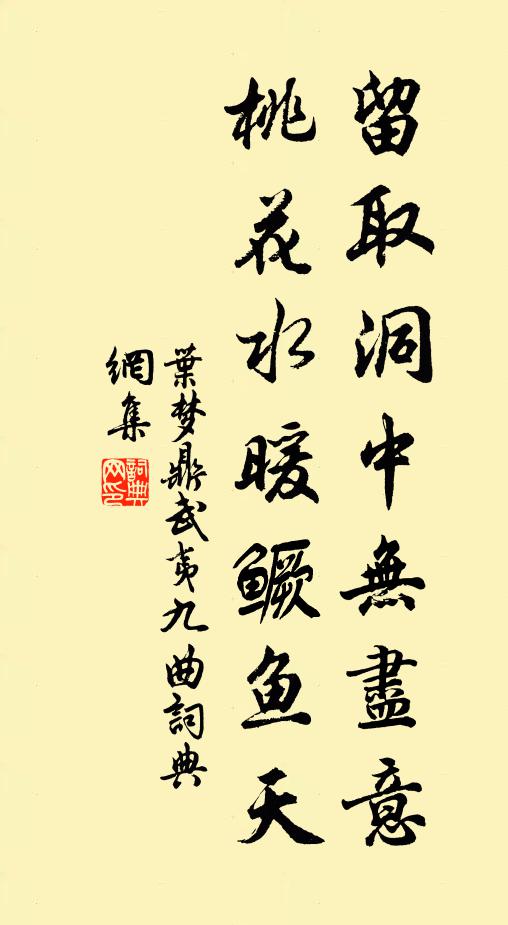 留取洞中無盡意
桃花水暖鳜鱼天
葉梦鼎武夷九曲詞典
網集
詞典
网印